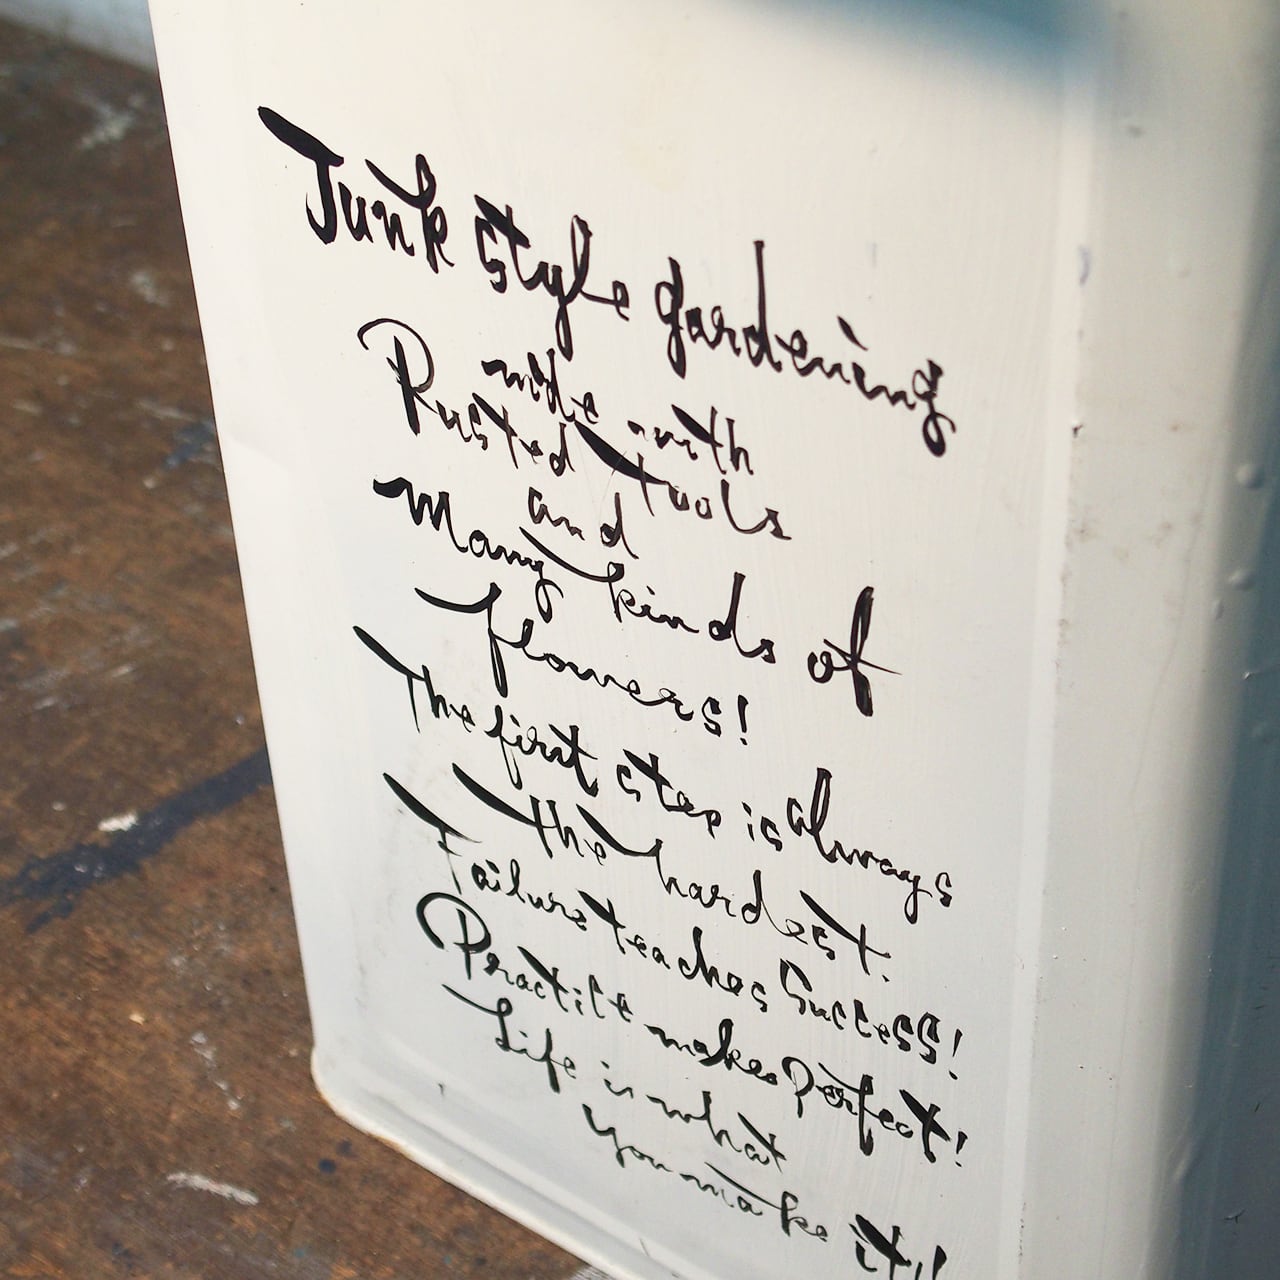 Junk style gardening
made with
Rusted tools
and
Many kinds of
flowers!
The first step is always
the hardest.
Failure teaches Success!
Practice makes Perfect!
Life is what
you make it!